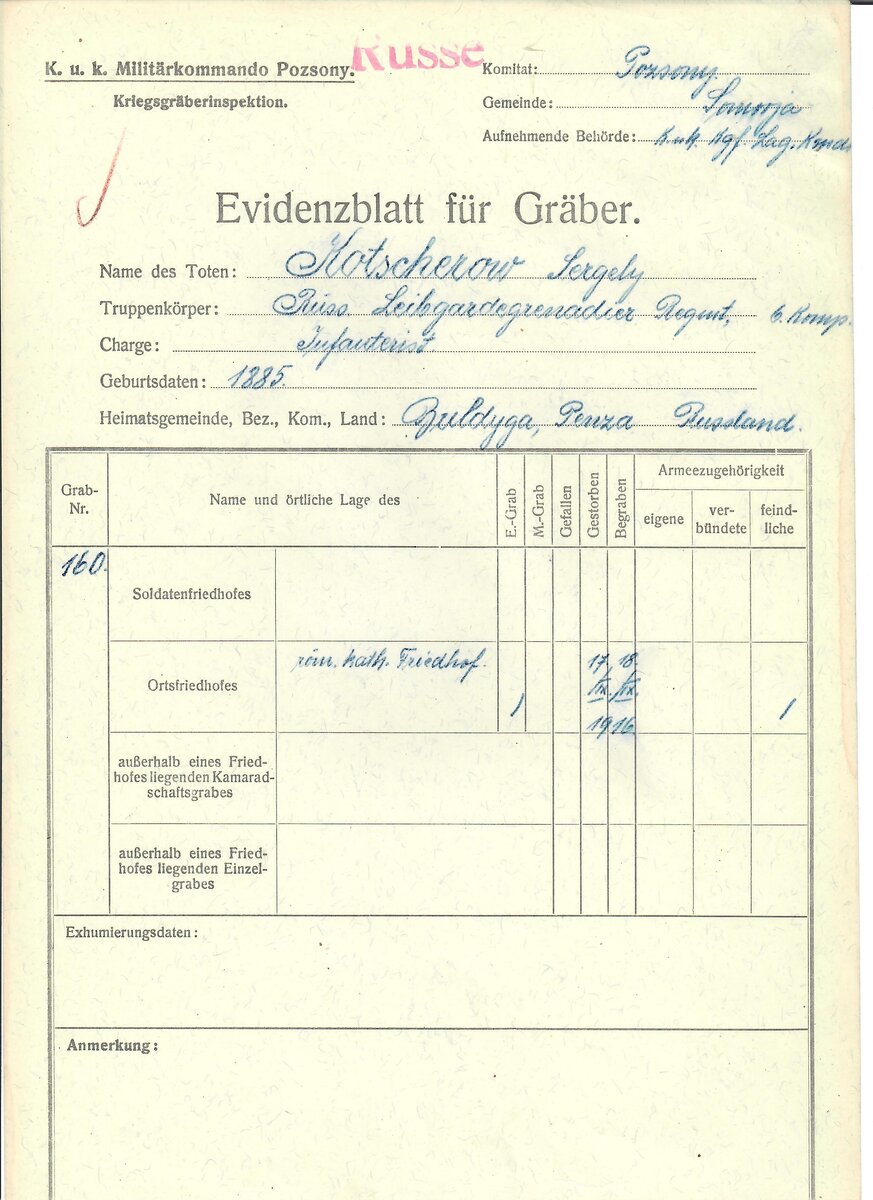 Russe
K. u. k. Militärkommando Pozsony.
Kriegsgräberinspektion.
Komitat: Pozsony.
Gemeinde: Somorja
Aufnehmende Behörde: K. u. k. Kgf. Lag. Kmdo
Evidenzblatt für Gräber.
Name des Toten: Kotscherow Sergely
Truppenkörper: Russ. Leibgardegrenadier Regmt, 6. Komp.
Charge: Infanterist
Geburtsdaten: 1885.
Heimatsgemeinde, Bez., Kom., Land: Penza Russland.
Grab-
Nr.
Name und örtliche Lage des
E.-Grab
M.-Grab
Gefallen
Gestorben
Begraben
Armeezugehörigkeit
eigene
ver-
bündete
feind-
liche
160.
Soldatenfriedhofes
Ortsfriedhofes
röm. kath. Friedhof.
/
17. 18.
/IX. /IX.
1916.
/
außerhalb eines Fried-
hofes liegenden Kamarad-
schaftsgrabes
außerhalb eines Fried-
hofes liegenden Einzel-
grabes
Exhumierungsdaten:
Anmerkung: